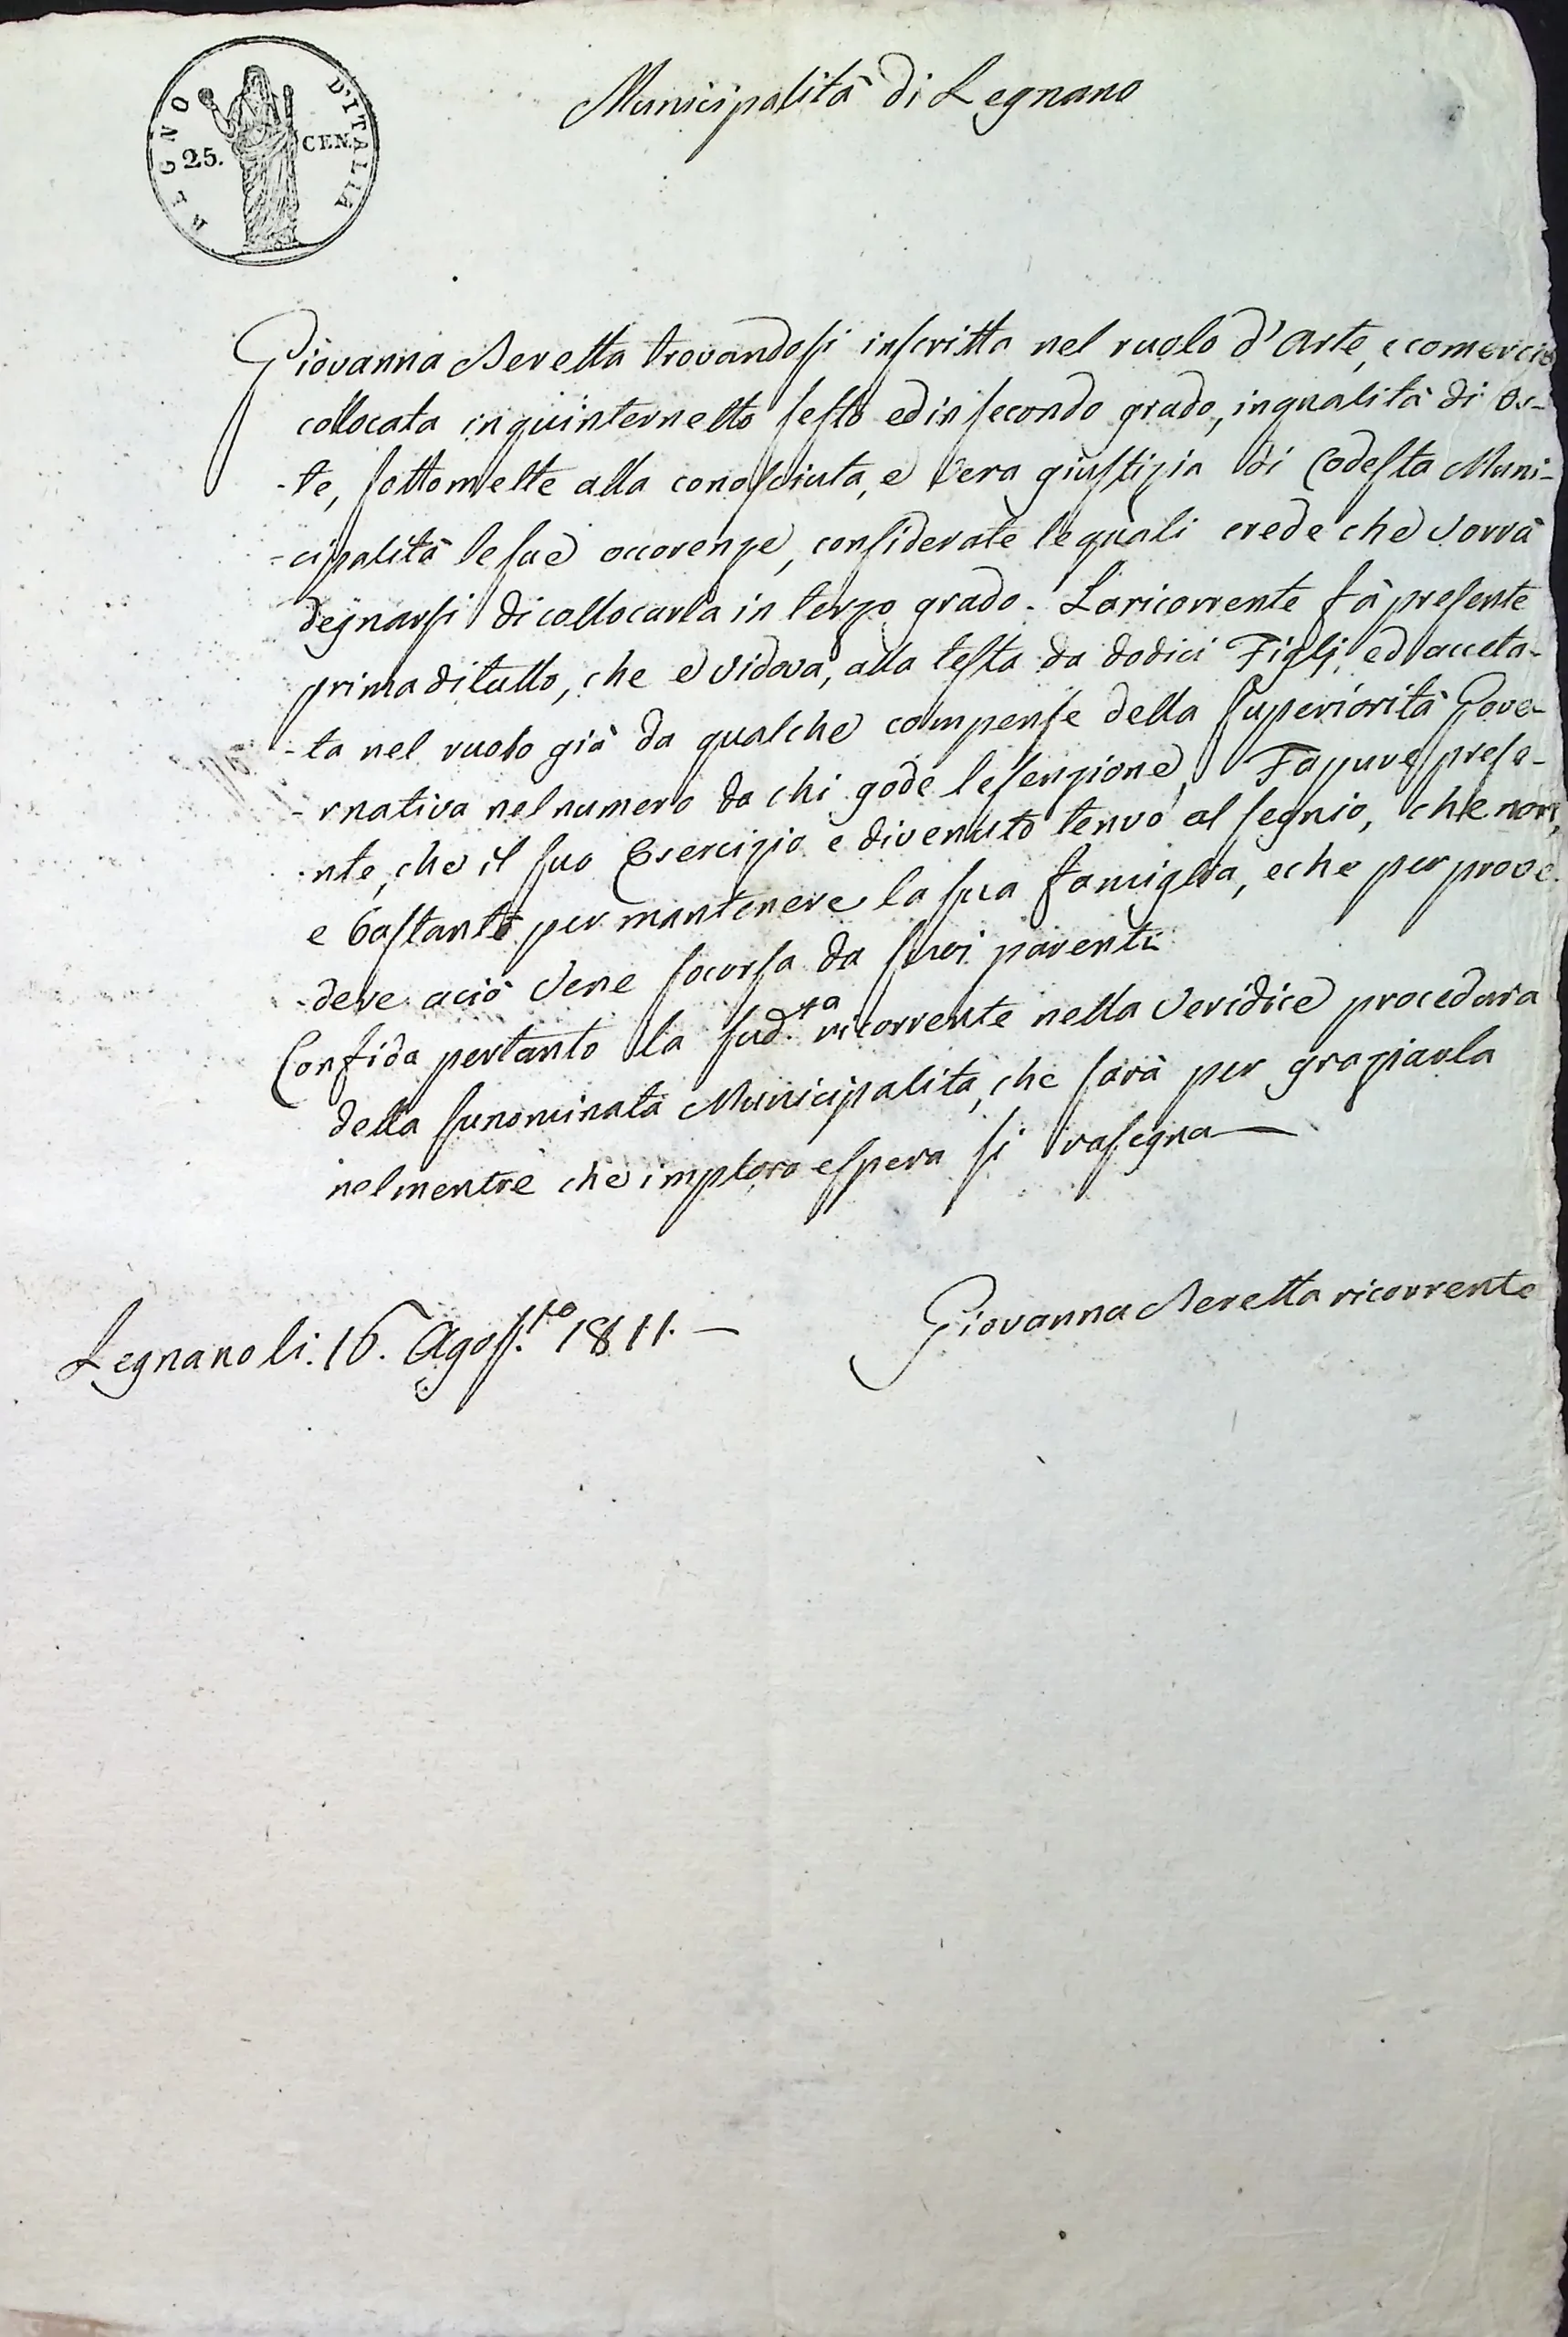 REGNO D'ITALIA
25. CEN.
Municipalità di Legnano
Giovanna Beretta trovandosi inscritta nel ruolo d'Arte, e comercio
collocata in quinternetto sesto ed in secondo grado, in qualità di Os-
-te, sottomette alla conosciuta, e vera giustizia di Codesta Muni-
-cipalità le sue occorenze, considerate le quali crede che vorrà
degnarsi di collocarla in terzo grado. La ricorrente fà presente
prima di tutto, che e vidova, alla testa da dodici Figlj, ed acceta-
-ta nel ruolo già da qualche compense della Superiorità Gove-
-rnativa nel numero da chi gode l'esenzione, Fa pure prese-
-nte, che il suo Esercizio e divenuto tenvo al segnio, che non,
e bastante per mantenere la sua famiglia, e che per prove-
-dere aciò vene socorsa da suoi parenti
Confida pertanto la sud.ta ricorrente nella veridice procedura
della sunominata Municipalita, che sarà per graziarla
nel mentre che implora e spera si rasegna—
Giovanna Beretta ricorrente
Legnano li. 16. Agos.to 1811.—